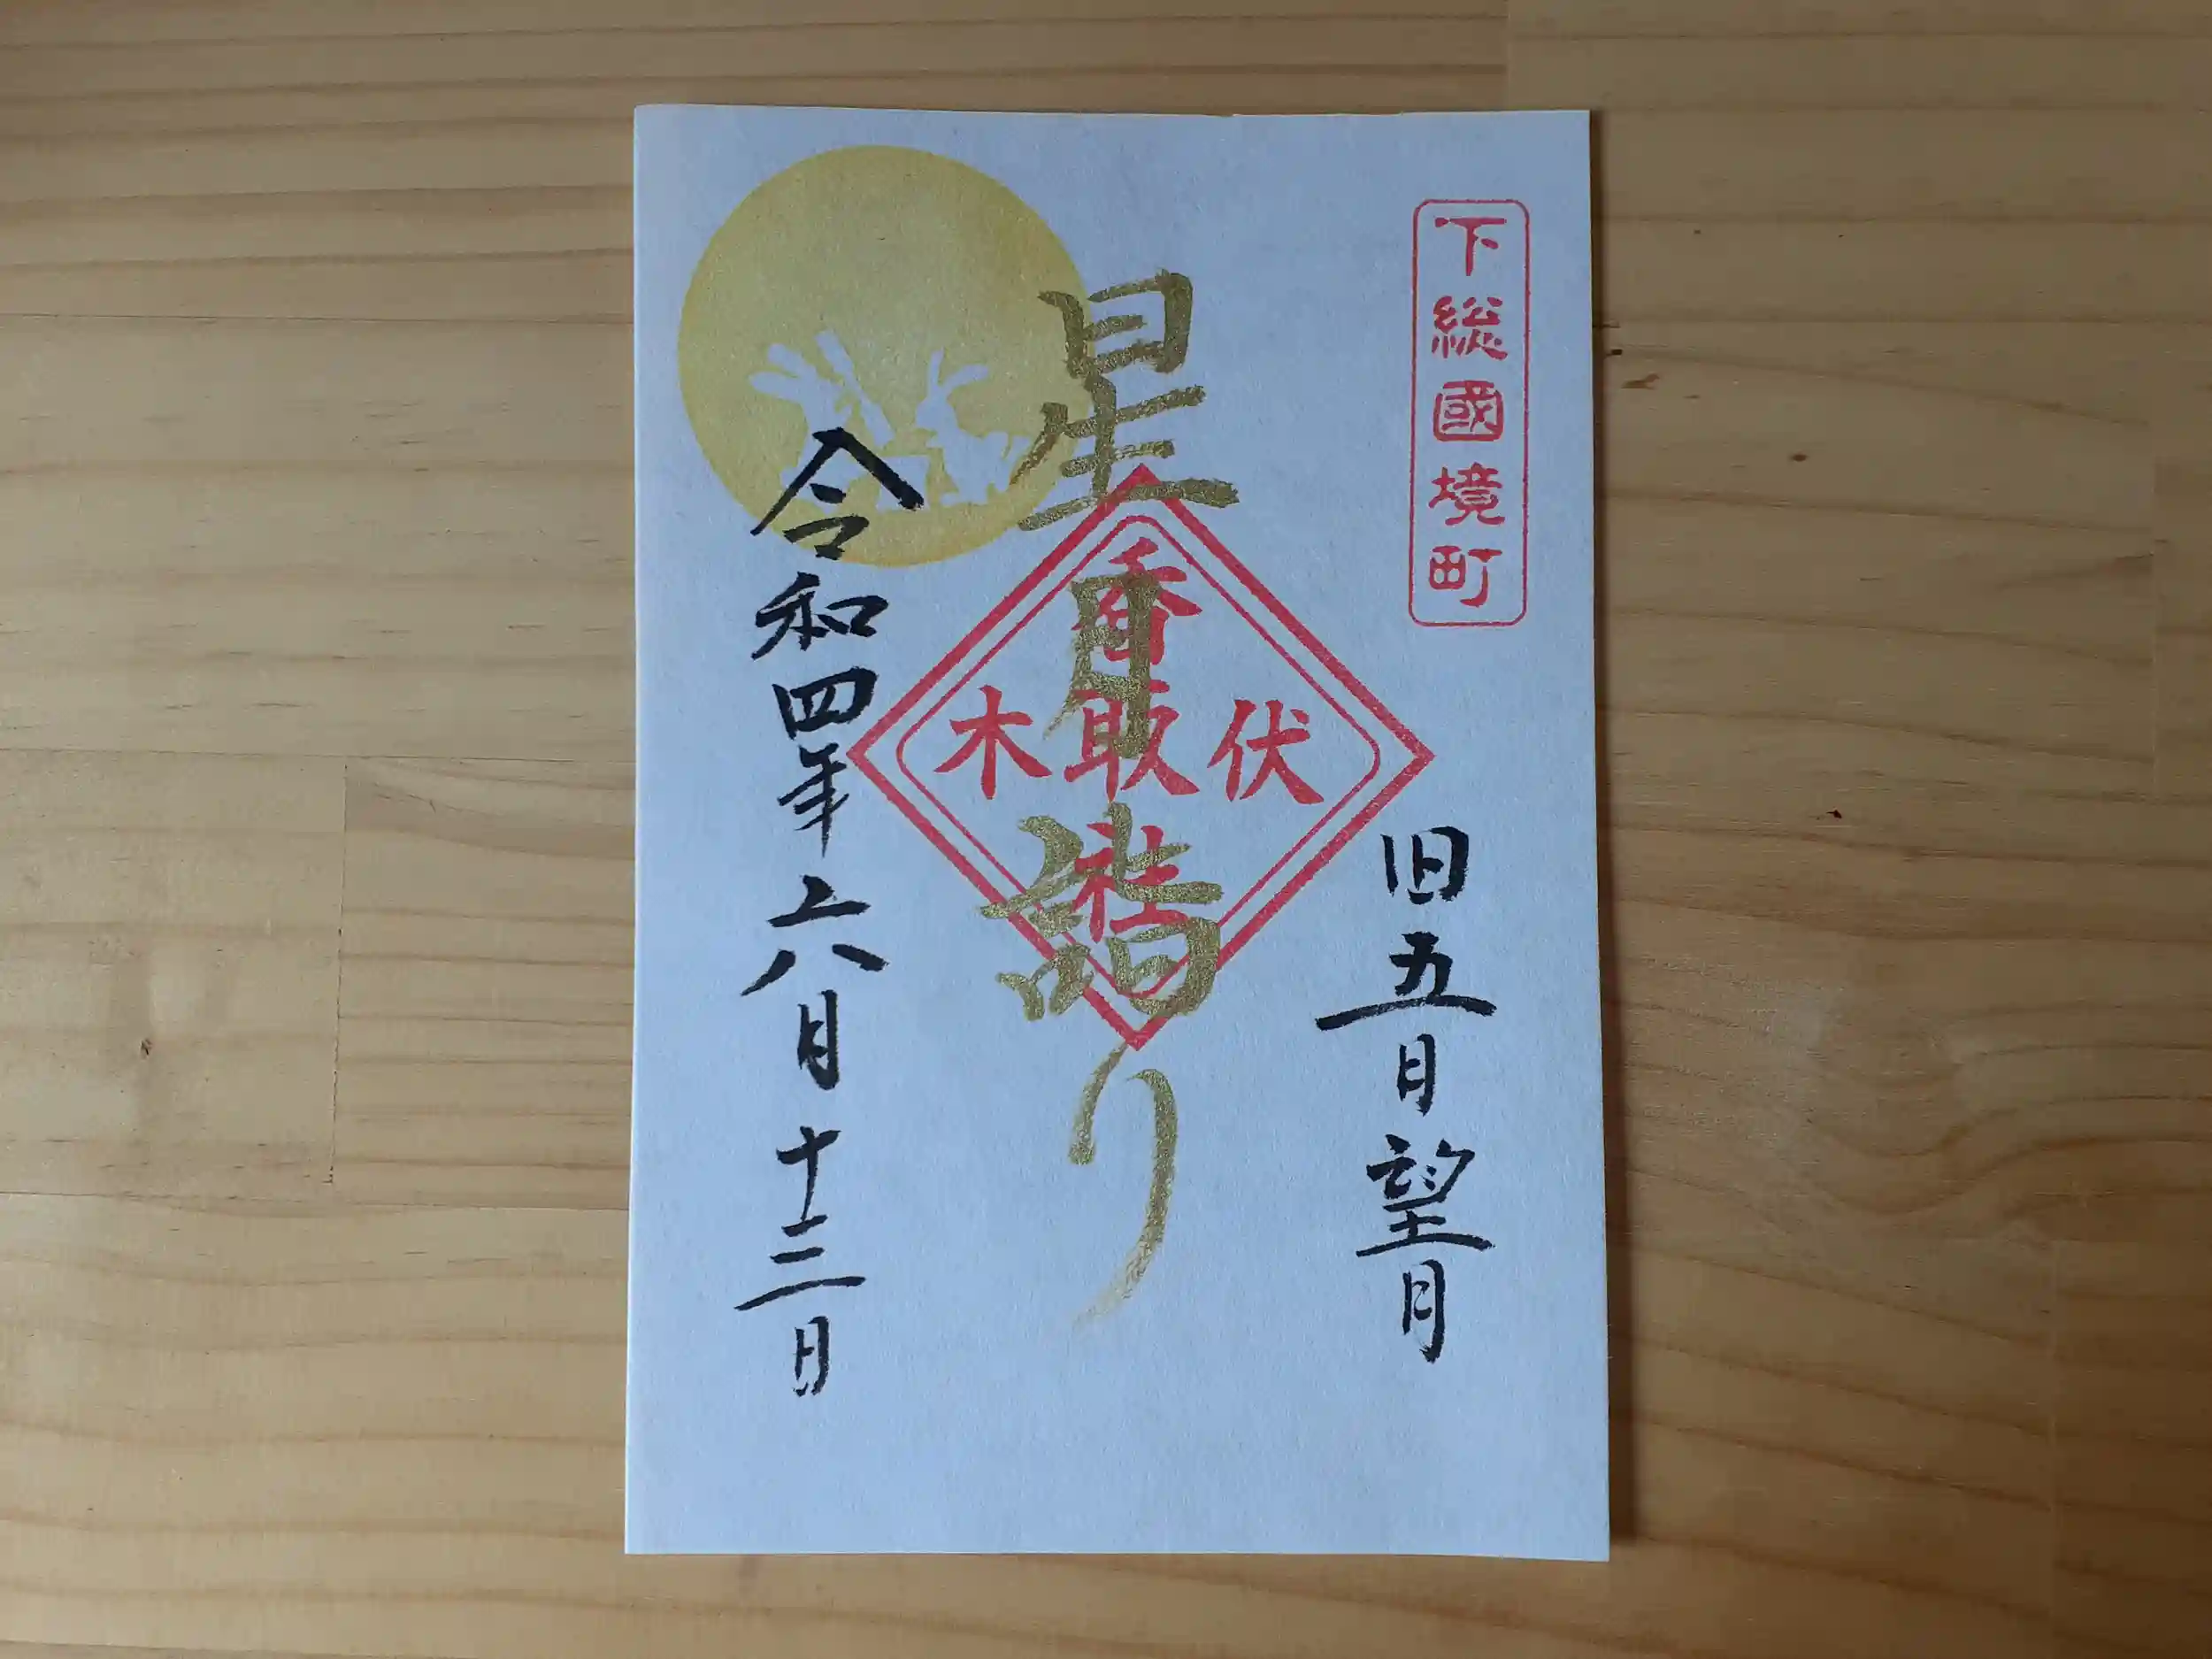 下総國境町
旧五月望月
星月詣り
伏木
香取社
令和四年六月十三日